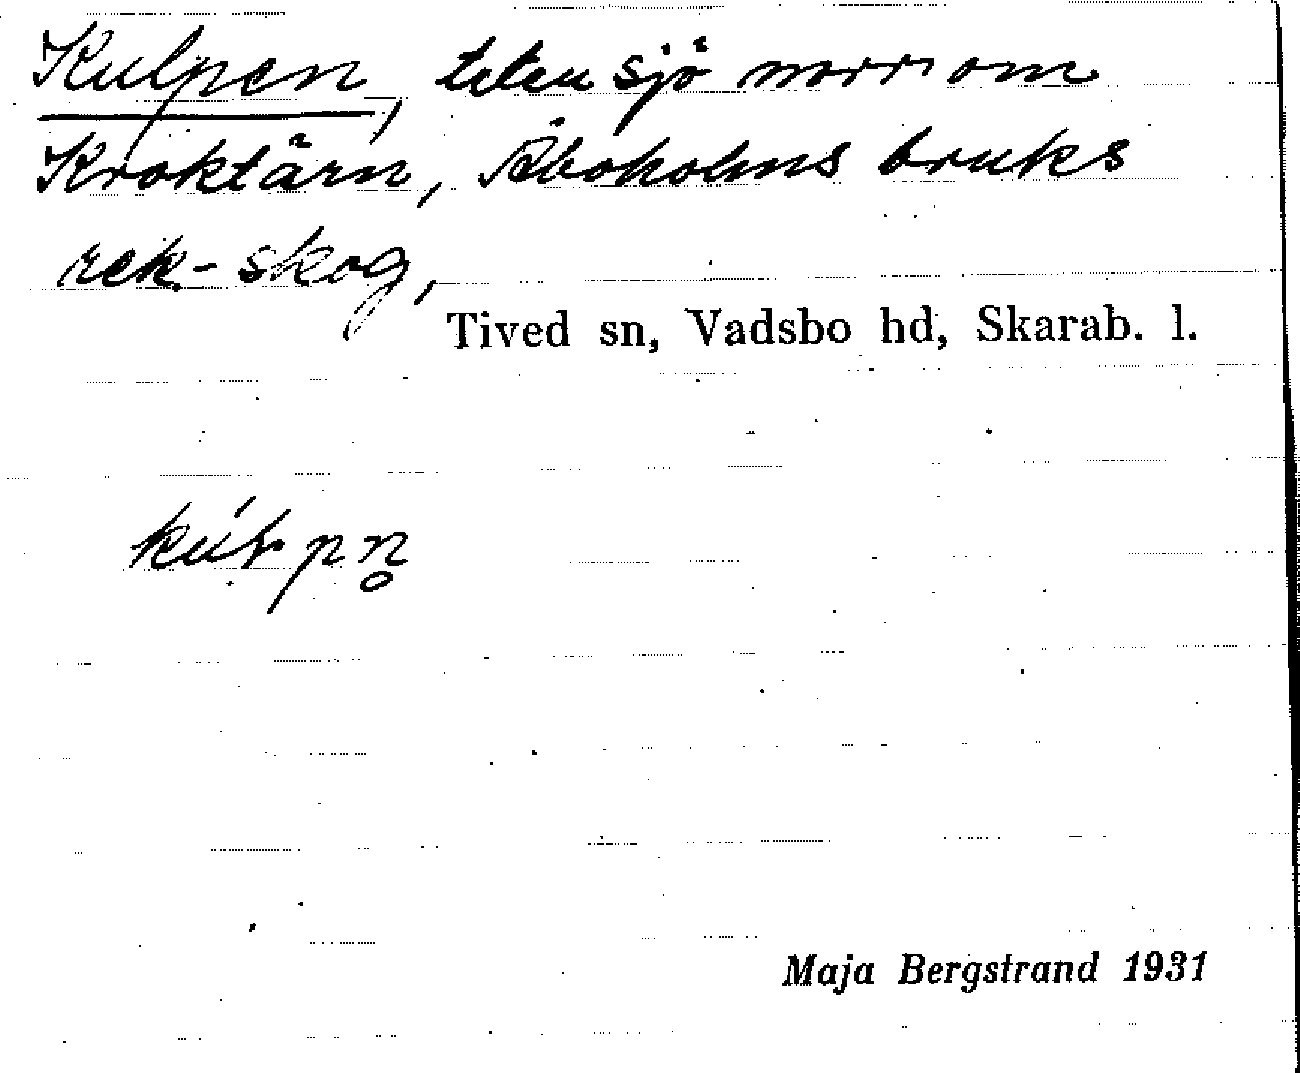 Kulpen, liten sjö norr om
Kroktärn, Åboholms bruks
rek.-skog,
Tived sn, Vadsbo hd, Skarab. l.
Maja Bergstrand 1931